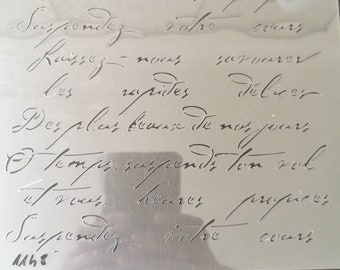 Suspendez votre cours
Laissez-nous savourer
les rapides délices
Des plus beaux de nos jours
O temps, suspends ton vol
et vous, heures propices
Suspendez votre cours
1148